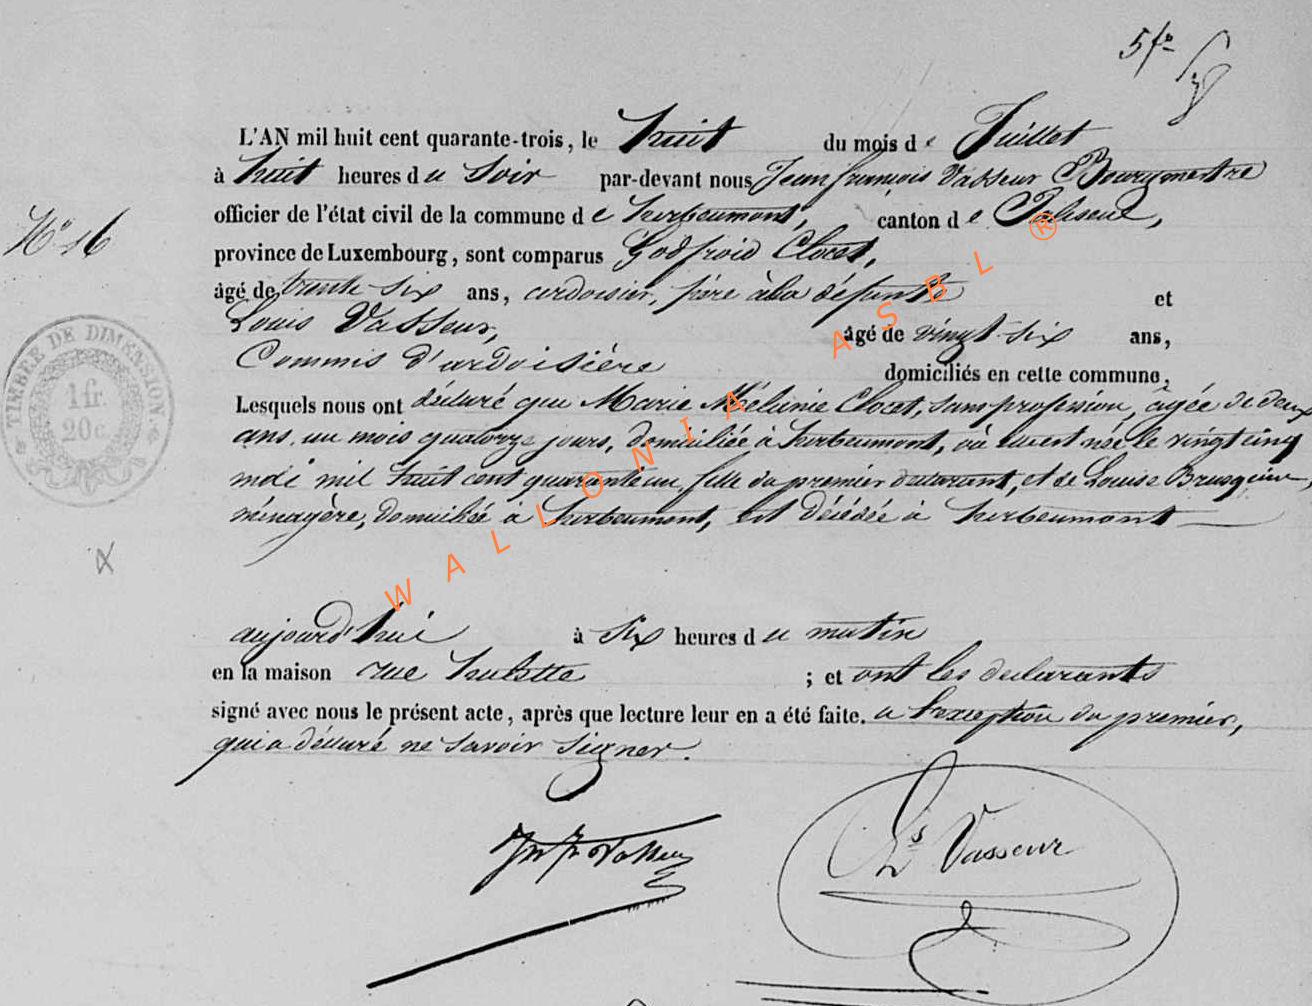 5 fo
L'AN mil huit cent quarante-trois, le huit du mois de Juillet
à huit heures du Soir par-devant nous Jean françois Vasseur Bourgmestre
officier de l'état civil de la commune de herbeumont, canton de Paliseul,
N° 16
province de Luxembourg, sont comparus Godfroid Clocet,
âgé de trente-six ans, ardoisier, père à la défunte et
Louis Vasseur, âgé de vingt-six ans,
Commis d'ardoisière domiciliés en cette commune,
Lesquels nous ont déclaré que Marie Mélinie Clocet, sans profession, agée de deux
ans, un mois quatorze jours, domiciliée à herbeumont, où elle est née le vingt cinq
mai mil huit cent quarante un, fille du premier déclarant, et de Louise
ménagère, domiciliée à herbeumont, est décédée à herbeumont
aujourd'hui à six heures du matin
en la maison rue hulette ; et ont les déclarants
signé avec nous le présent acte, après que lecture leur en a été faite. a l'exception du premier,
qui a déclaré ne savoir signer.
Jn fr Vasseur
Ls Vasseur
TIMBRE DE DIMENSION.
1 fr.
20 c.
WALLONIA ASBL ®